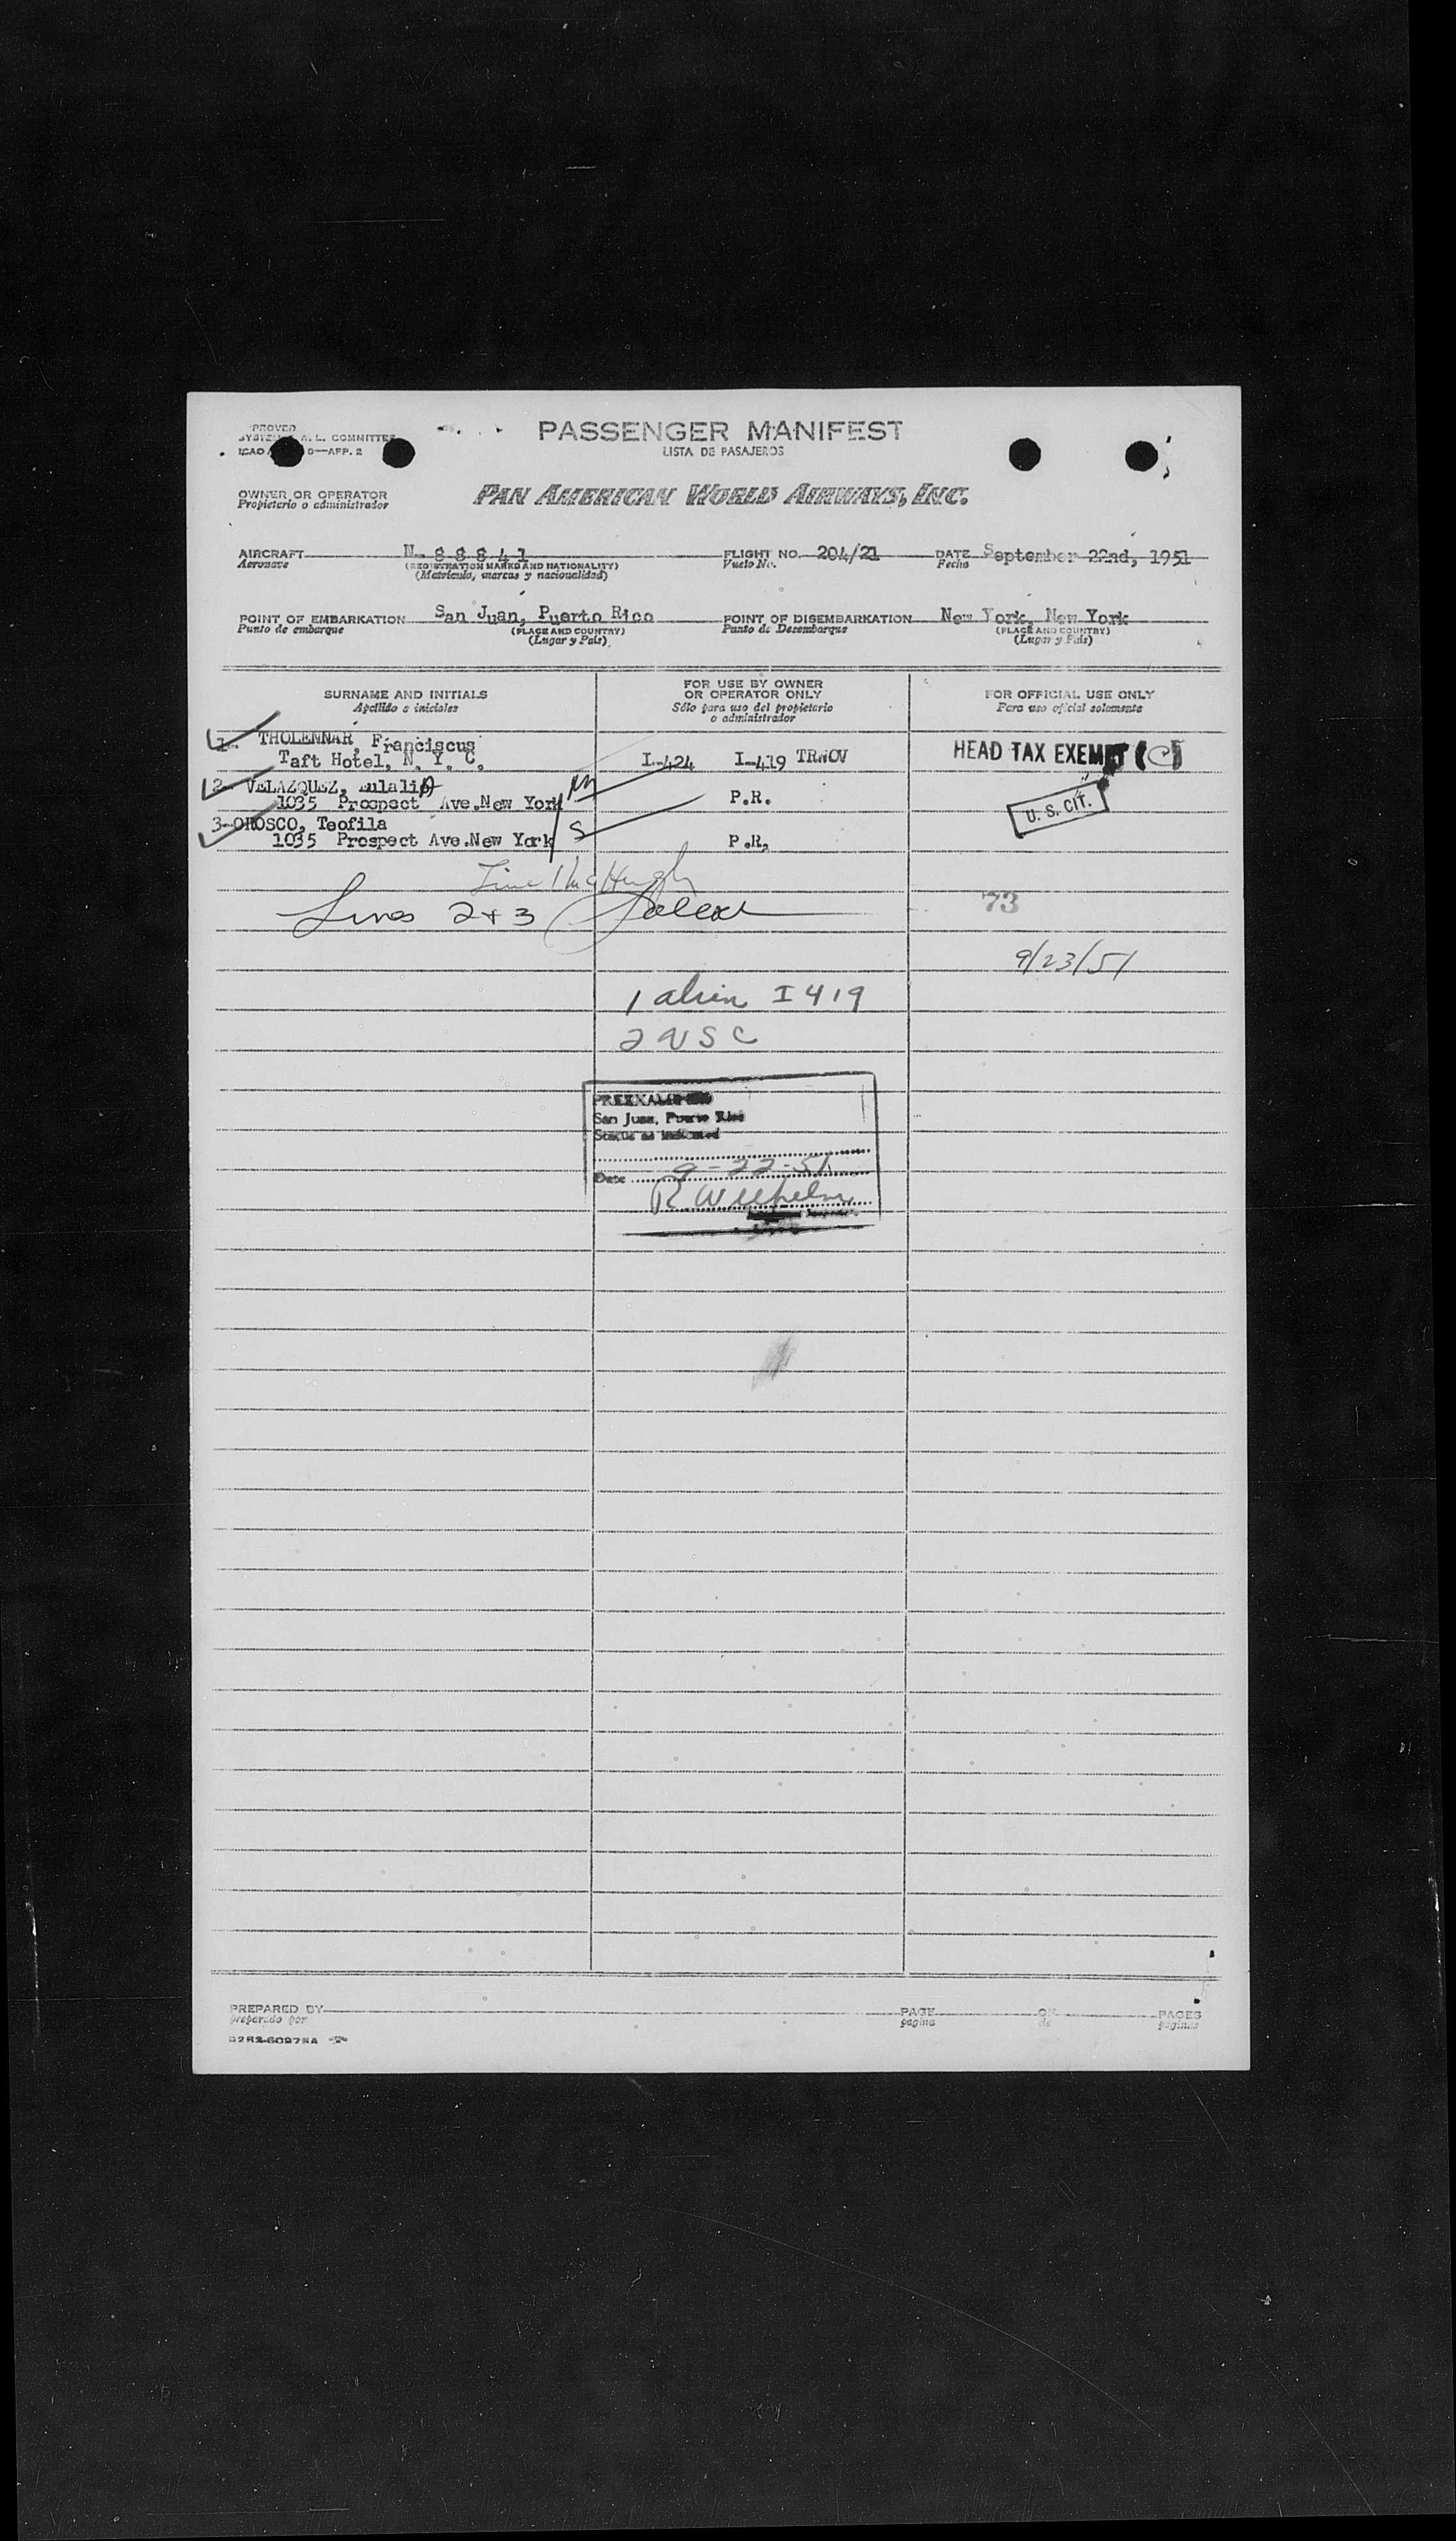 PASSENGER MANIFEST
LISTA DE PASAJEROS
PROVED
A. L. COMMITTEE
ICAO D—APP. 2
OWNER OR OPERATOR
Propietario o administrador
PAN AMERICAN WORLD AIRWAYS, INC.
AIRCRAFT N- 8 8 8 4 1 FLIGHT NO. 204/21 DATE September 22nd, 1951
Aeronave (REGISTRATION MARKS AND NATIONALITY) Vuelo No. Fecha
(Matrícula, marcas y nacionalidad)
POINT OF EMBARKATION San Juan, Puerto Rico POINT OF DISEMBARKATION New York, New York
Punto de embarque (PLACE AND COUNTRY) Punto de Desembarque (PLACE AND COUNTRY)
(Lugar y País) (Lugar y País)
SURNAME AND INITIALS FOR USE BY OWNER OR OPERATOR ONLY FOR OFFICIAL USE ONLY
Apellido e iniciales Sólo para uso del propietario o administrador Para uso oficial solamente
1- THOLENNAR, Franciscus
Taft Hotel, N. Y. C. I-424 I-419 TRWOV HEAD TAX EXEMPT (C)
2- VELAZQUEZ, EulaliA
1035 Prospect Ave.New York M P.R. U. S. CIT.
3-OROSCO, Teofila
1035 Prospect Ave.New York S P.R,
Line 1 McHugh
Lines 2+3 73
9/23/51
1 alien I 419
2 USC
PREEXAMINED
San Juan, Puerto Rico
Status as indicated
Date 9-22-51
R Wilhelm
Inspector
PREPARED BY PAGE OF PAGES
preparado por página de páginas